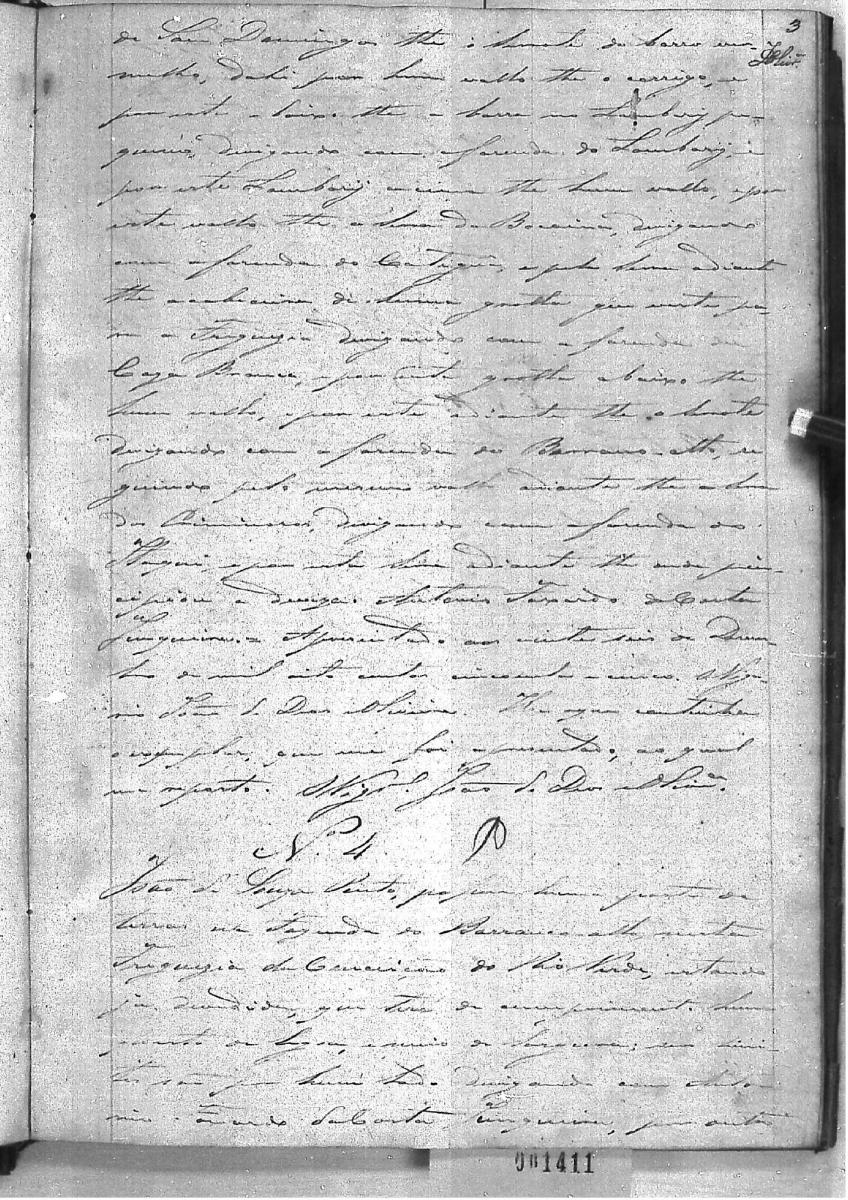 3
Olivrª
de São Domingos the o limite do barro ver
melho, dahi por hum vallo the o corrigo, e
por este a baixo the a barra no Lambarÿ pe-
queno, divizando com a fazenda do Lambarÿ, e
por este Lambarÿ acima the hum vallo, e por
este vallo the a serra da Bocaina, divizando
com a fazenda do Categuá, e pela serra adiante
the a cabeceira de huma grotta que verte pa-
ra a Freguezia divizando com a fazenda da
Caza Branca, e por esta grotta abaixo the
hum vallo, e por este adiante the o
divizando com a fazenda do Barranco-alto, se
guindo pelo mesmo vallo adiante the a
dos divizando com a fazenda do
e por esta adiante the onde prin-
cipiou a diviza. Antonio da Costa
Junqueira = Apresentado aos vinte seis de Dezem
bro de mil oito centos cincoenta e cinco. O Viga-
rio João de Deos Oliveira. He o que continha
o exemplar, que me foi apresentado, ao qual
me reporto. O Vigrº. João de Deos Olivrª
Nº 4.
João de Souza Pinto, possue huma parte de
terras na Fazenda do Barranco alto nesta
Freguezia da Conceição do Rio Verde, estando
ja dividida, que tem de comprimento hum
quarto de legoa, e meio de largura; seus limi-
tes são por hum lado divizando com Anto-
nio da Costa Junqueira, por outro
001411